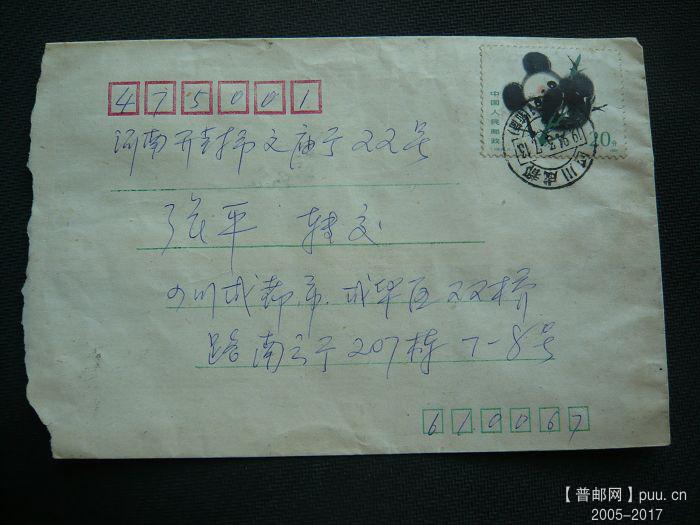 475001
中国人民邮政
20分
四川 成都
河南开封市文庙街22号
张平 转交
四川成都市.成华区双桥
路南三街207栋7-8号
610067
【普邮网】puu.cn
2005-2017